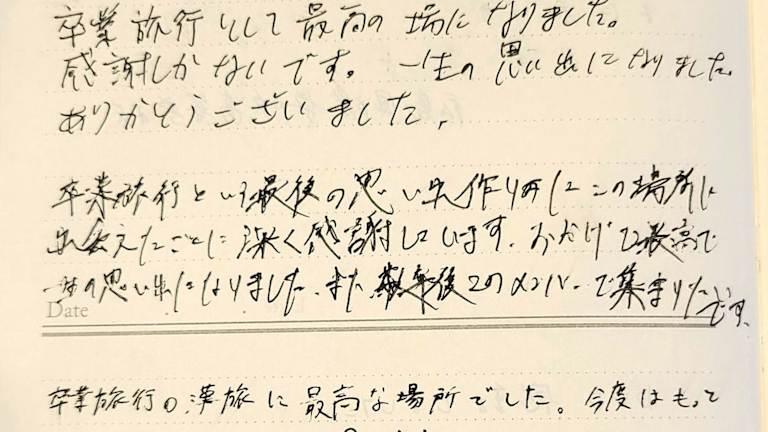 卒業旅行として最高の場になりました。
感謝しかないです。一生の思い出になりました。
ありがとうございました。
卒業旅行という最後の思い出作りの所にこの場所に
出会えたことに深く感謝しています。おかげで最高で
一生の思い出になりました。また数年後このメンバーで集まりたいです。
Date
卒業旅行の旅に最高な場所でした。今度はもって